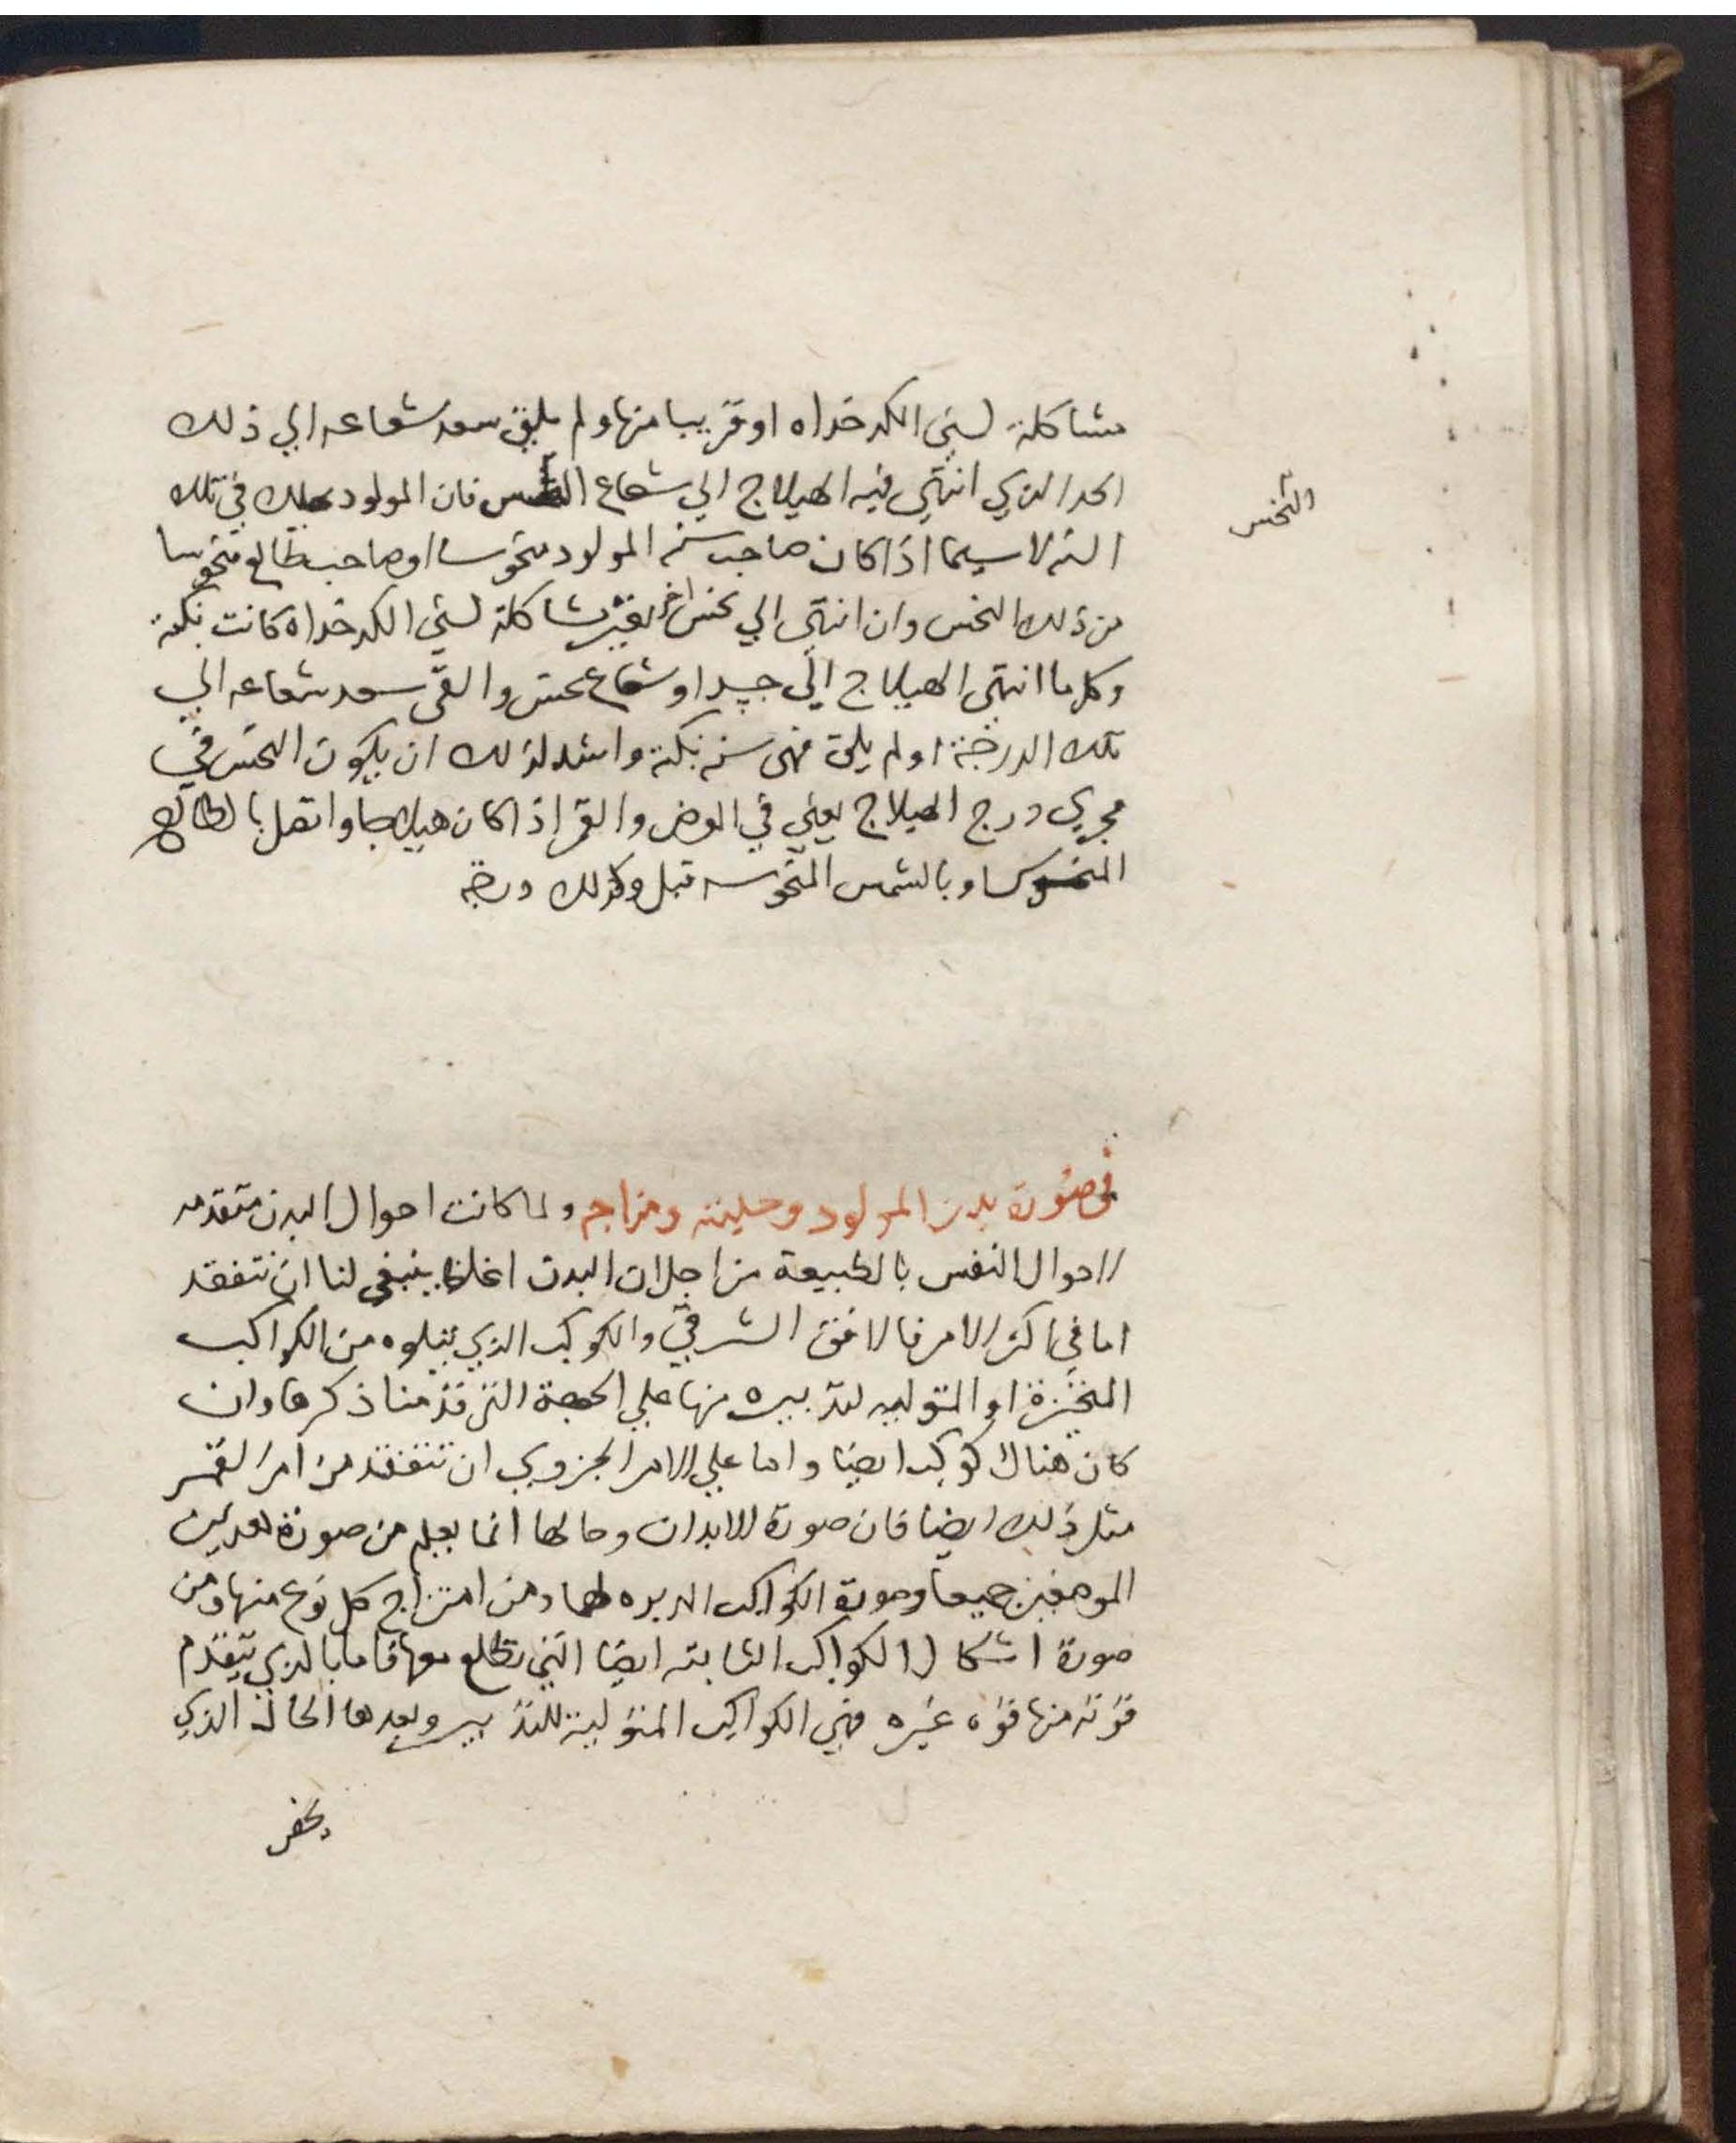 مشاكلة لسني الكدخداه او قريبا منها ولم يلق سعد شعاعه الي ذلك
الحد الذي انتهي فيه الهيلاج الي شعاع النحس فان المولود يهلك في تلك
النحس
السنه لا سيما اذا كان صاحب سنه المولود منحوسا او صاحب طالع منحوسا
من ذلك النحس وان انتهي الي نحس اخر بغير مشاكلة لسني الكدخداه كانت نكبة
وكلما انتهي الهيلاج الي جسد او شعاع نحس والقي سعد شعاعه الي
تلك الدرجة او لم يلق فهي سنه نكبة واشد لذلك ان يكون النحس في
مجري درج الهيلاج يعني في العرض والقمر اذا كان هيلاجا واتصل بالطالع
المنحوس او بالشمس المنحوسه قبل وكذلك درجة
في صورة بدن المولود وحليته ومزاجه ولما كانت احوال البدن متقدمه
لاحوال النفس بالطبيعة من اجل ان البدن ينبغي لنا ان نتفقد
اما في اكثر الامر فالافق الشرقي والكوكب الذي يتلوه من الكواكب
المتحيزة او المتوليه لتدبيره منها علي الجهة التي قدمنا ذكرها وان
كان هناك كوكب ايضا واما علي الامر الجزوي ان نتفقد من امر القمر
مثل ذلك ايضا فان صورة الابدان وحالها انما يعلم من صورة هدين
الموضعين جميعا وصورة الكواكب المدبره لهما ومن امتزاج كل نوع منها ومن
صورة اشكال الكواكب الثابته ايضا التي تطلع معها فاما الذي يتقدم
قوته منها قوه غيره فهي الكواكب المتولية للتدبير وبعدها الحالة الذي